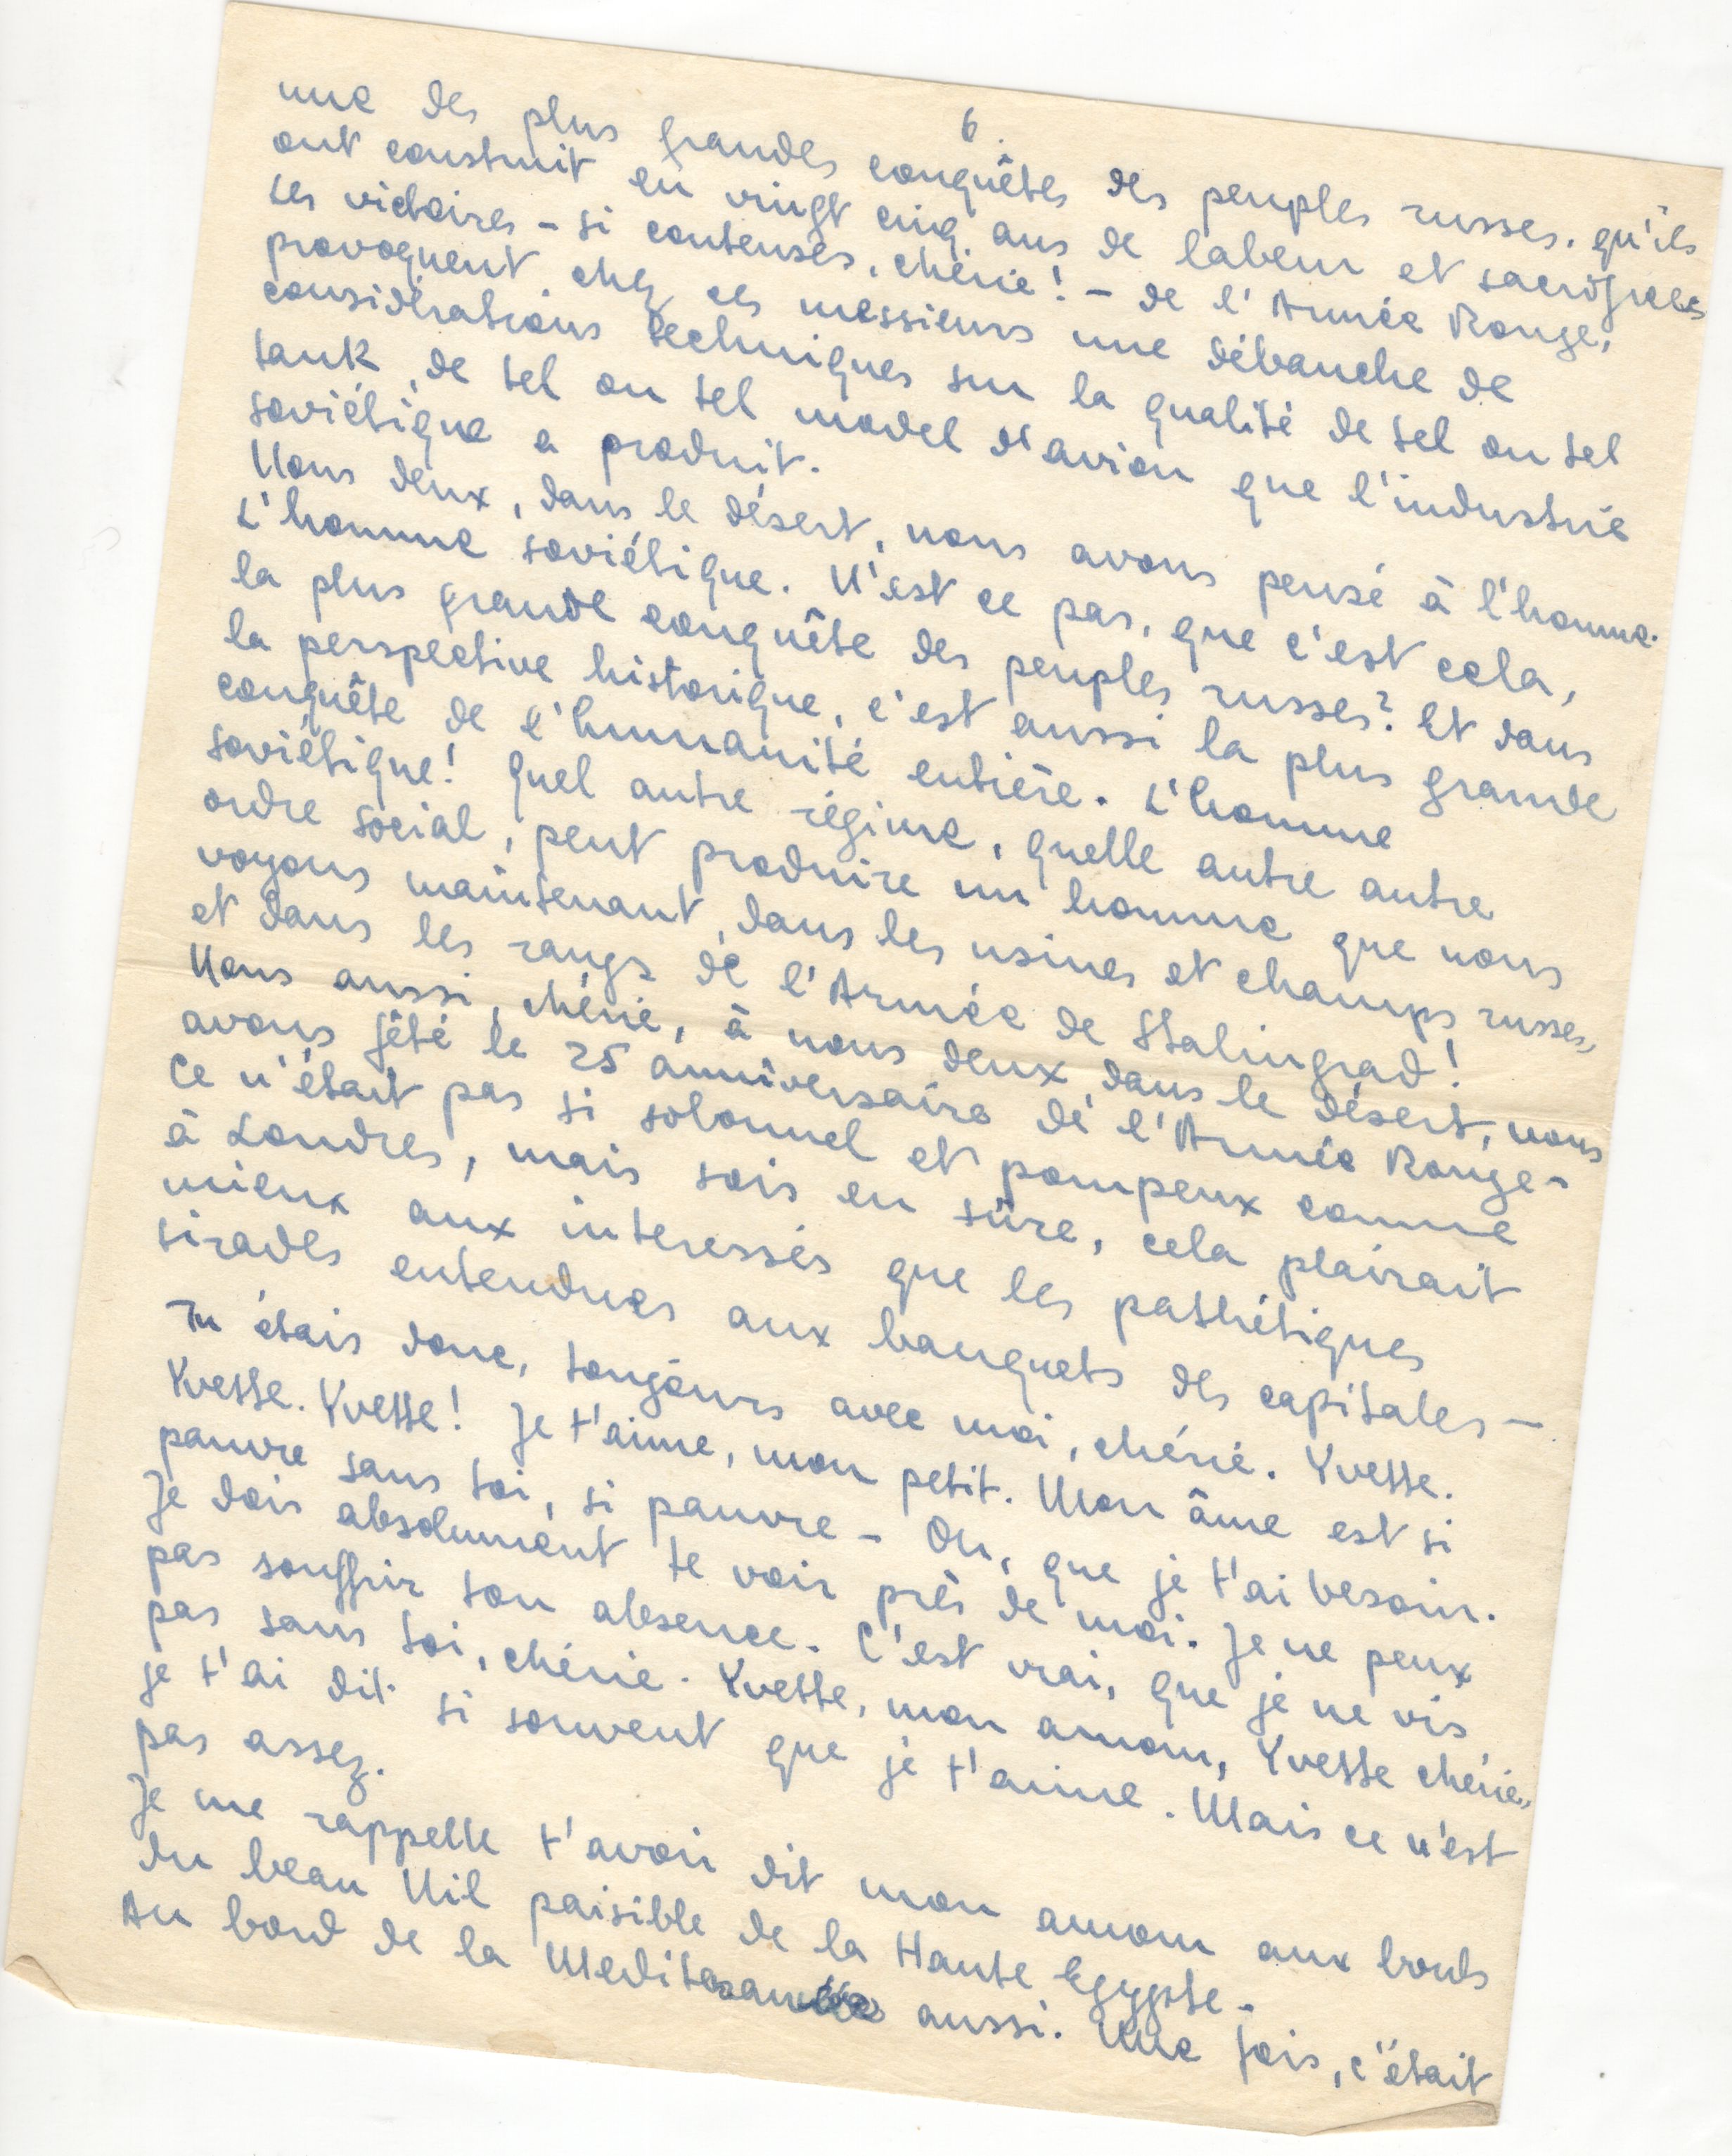 6.
une des plus grandes conquêtes des peuples russes, qu'ils
ont construit en vingt cinq ans de labeur et sacrifices
Les victoires - si contenses, chérie! - de l'Armée Rouge,
provoquent chez ces messieurs une débauche de
considérations techniques sur la qualité de tel ou tel
tank, de tel ou tel model d'avion que l'industrie
soviétique a produit.
Nous deux, dans le désert, nous avons pensé à l'homme.
L'homme soviétique. N'est ce pas, que c'est cela,
la plus grande conquête des peuples russes? Et dans
la perspective historique, c'est aussi la plus grande
conquête de l'humanité entière. L'homme
soviétique! Quel autre régime, quelle autre autre
ordre social, peut produire un homme que nous
voyons maintenant, dans les usines et champs russes,
et dans les rangs de l'Armée de Stalingrad!
Nous aussi, chérie, à nous deux, dans le désert, nous
avons fêté le 25 anniversaire de l'Armée Rouge -
Ce n'était pas si solonnel et pompeux comme
à Londres, mais sois en sûre, cela plairait
mieux aux interessés que les pathétiques
tirades entendues aux banquets des capitales -
Tu étais donc, toujours avec moi, chérie. Yvette.
Yvette. Yvette! Je t'aime, mon petit. Mon âme est si
pauvre sans toi, si pauvre - Oh, que je t'ai besoin.
Je dois absolument te voir près de moi. Je ne peux
pas souffrir ton absence. C'est vrai, que je ne vis
pas sans toi, chérie. Yvette, mon amour, Yvette chérie,
je t'ai dit si souvent que je t'aime. Mais ce n'est
pas assez.
Je me rappelle t'avoir dit mon amour aux bords
du beau Nil paisible de la Haute Egypte -
Au bord de la aussi. Une fois, c'était